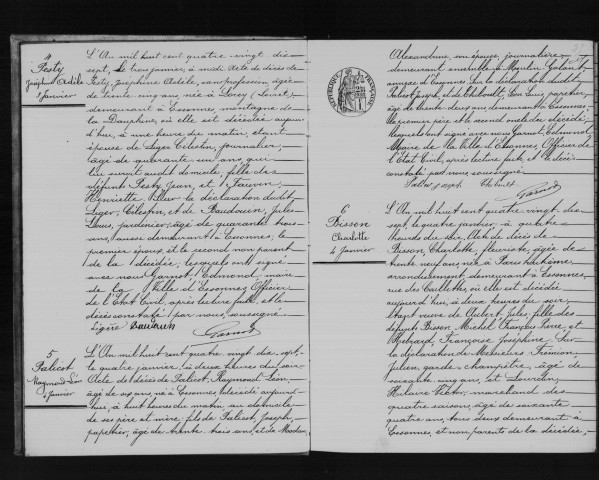 4
Pesty
Joséphine Adèle
3 janvier
L'An mil huit cent quatre vingt dix
sept, le trois janvier, à midi Acte de décès de
Pesty, Joséphine Adèle, sans profession, âgée
de trente cinq ans, née à Lorcy (Loiret),
demeurant à Essonnes, montagne de
la Dauphine, où elle est décédée aujour-
d'hui, à une heure du matin, étant
épouse de Liger Célestin, journalier,
âgé de quarante un ans qui
lui survit audit domicile, fille des
défunts Pesty Jean, et Fauvin,
Henriette. Sur la déclaration dudit
Liger, Célestin, et de Baudouin, Jules
Louis, jardinier, âgé de quarante trois
ans, aussi demeurant à Essonnes, le
premier époux, et le second non parent
de la décédée, lesquels ont signé
avec nous Garnot, Edmond, maire
de la Ville d'Essonnes Officier
de l'Etat Civil, après lecture faite et le
décès constaté par nous, soussigné
Ligère Baudouin
5
Palicot
Raymond Léon
4 janvier
L'An mil huit cent quatre vingt dix sept,
le quatre janvier, à deux heures du soir
Acte de décès de Palicot, Raymond Léon,
âgé de ans, né à Essonnes décédé aujour-
d'hui, à huit heures du matin au domicile
de ses père et mère, fils de Palicot, Joseph,
papetier, âgé de trente trois ans, et de
RÉPUBLIQUE FRANÇAISE
Alexandrine, son épouse, journalière
demeurant ensemble à Moulin Galant
annexe d'Essonnes. Sur la déclaration dudit
Palicot Joseph, et de Thibault, Léon Louis, papetier,
âgé de trente deux ans demeurant à Essonnes,
le premier père et le second oncle du décédé,
lesquels ont signé avec nous Garnot, Edmond,
Maire de la Ville d'Essonnes, Officier de
l'Etat Civil, après lecture faite et le décès
constaté par nous soussigné
6
Bisson
Charlotte
4 janvier
L'An mil huit cent quatre vingt dix
sept, le quatre janvier, à quatre
heures du soir. Acte de décès de
Bisson, Charlotte, fleuriste, âgée de
trente neuf ans, née à Paris
arrondissement, demeurant à Essonnes,
rue des Caillettes, où elle est décédée
aujourd'hui, à deux heures du soir
étant veuve de Aubert Jules, fille des
défunts Bisson, Michel François Pierre, et
Richard, Françoise Joséphine. Sur
la déclaration de Messieurs Frémion,
Julien, garde-champêtre, âgé de
soixante cinq ans, et Lourdin,
Hilaire Victor, marchand des
quatre saisons, âgé de soixante
quatre ans, tous deux demeurant à
Essonnes, et non parents de la décédée,